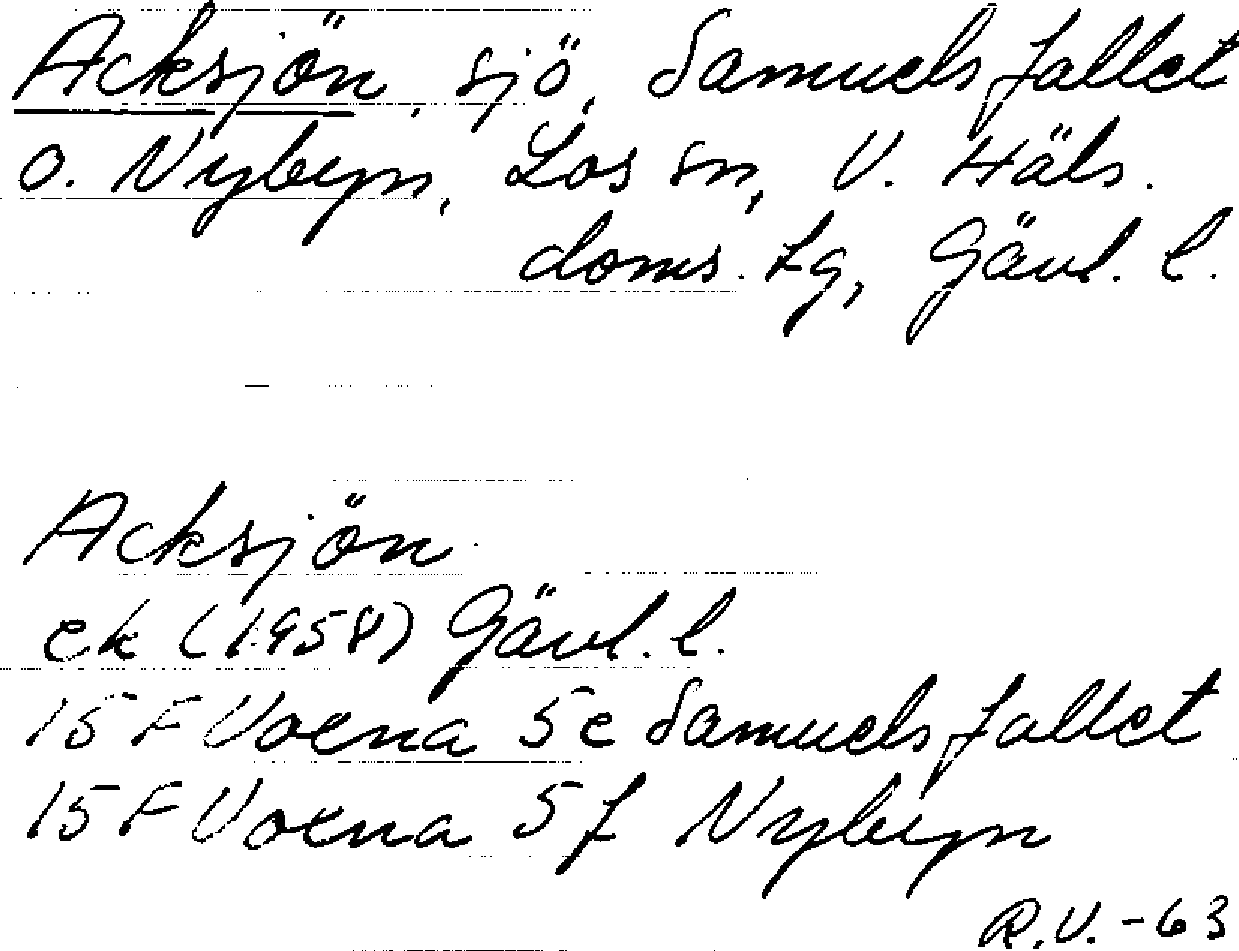 Acksjön, sjö, Samuelsfallet
o. Nybyn, Los sn, V. Häls.
doms. tg, Gävl. l.
Acksjön
ek (1958) Gävl. l.
15 F Voxna 5e Samuelsfallet
15 F Voxna 5f Nybyn
R.V. -63